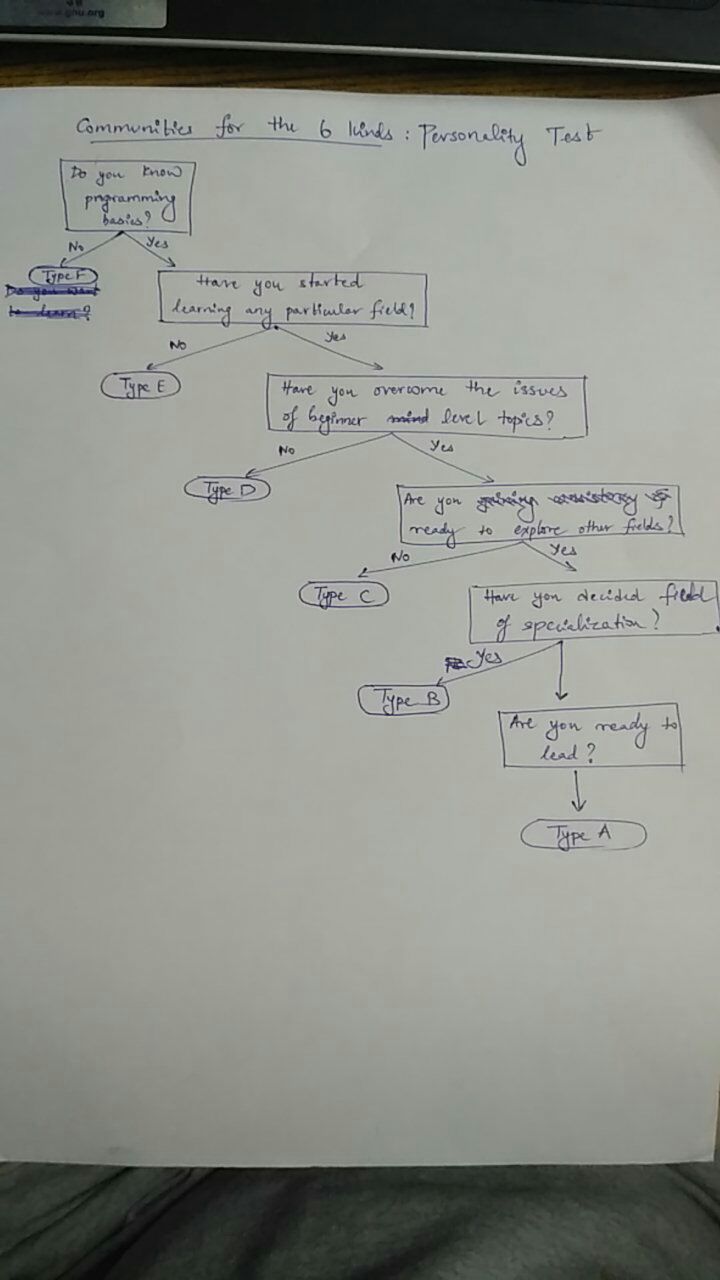 www.gnu.org
Communities for the 6 kinds : Personality Test
Do you know
programming
basics?
No
Yes
Type F
Do you want
to learn?
Have you started
learning any particular field?
No
Yes
Type E
Have you overcome the issues
of beginner mind level topics?
No
Yes
Type D
Are you
ready to explore other fields?
No
Yes
Type C
Have you decided field
of specialization?
Yes
Type B
Are you ready to
lead?
Type A